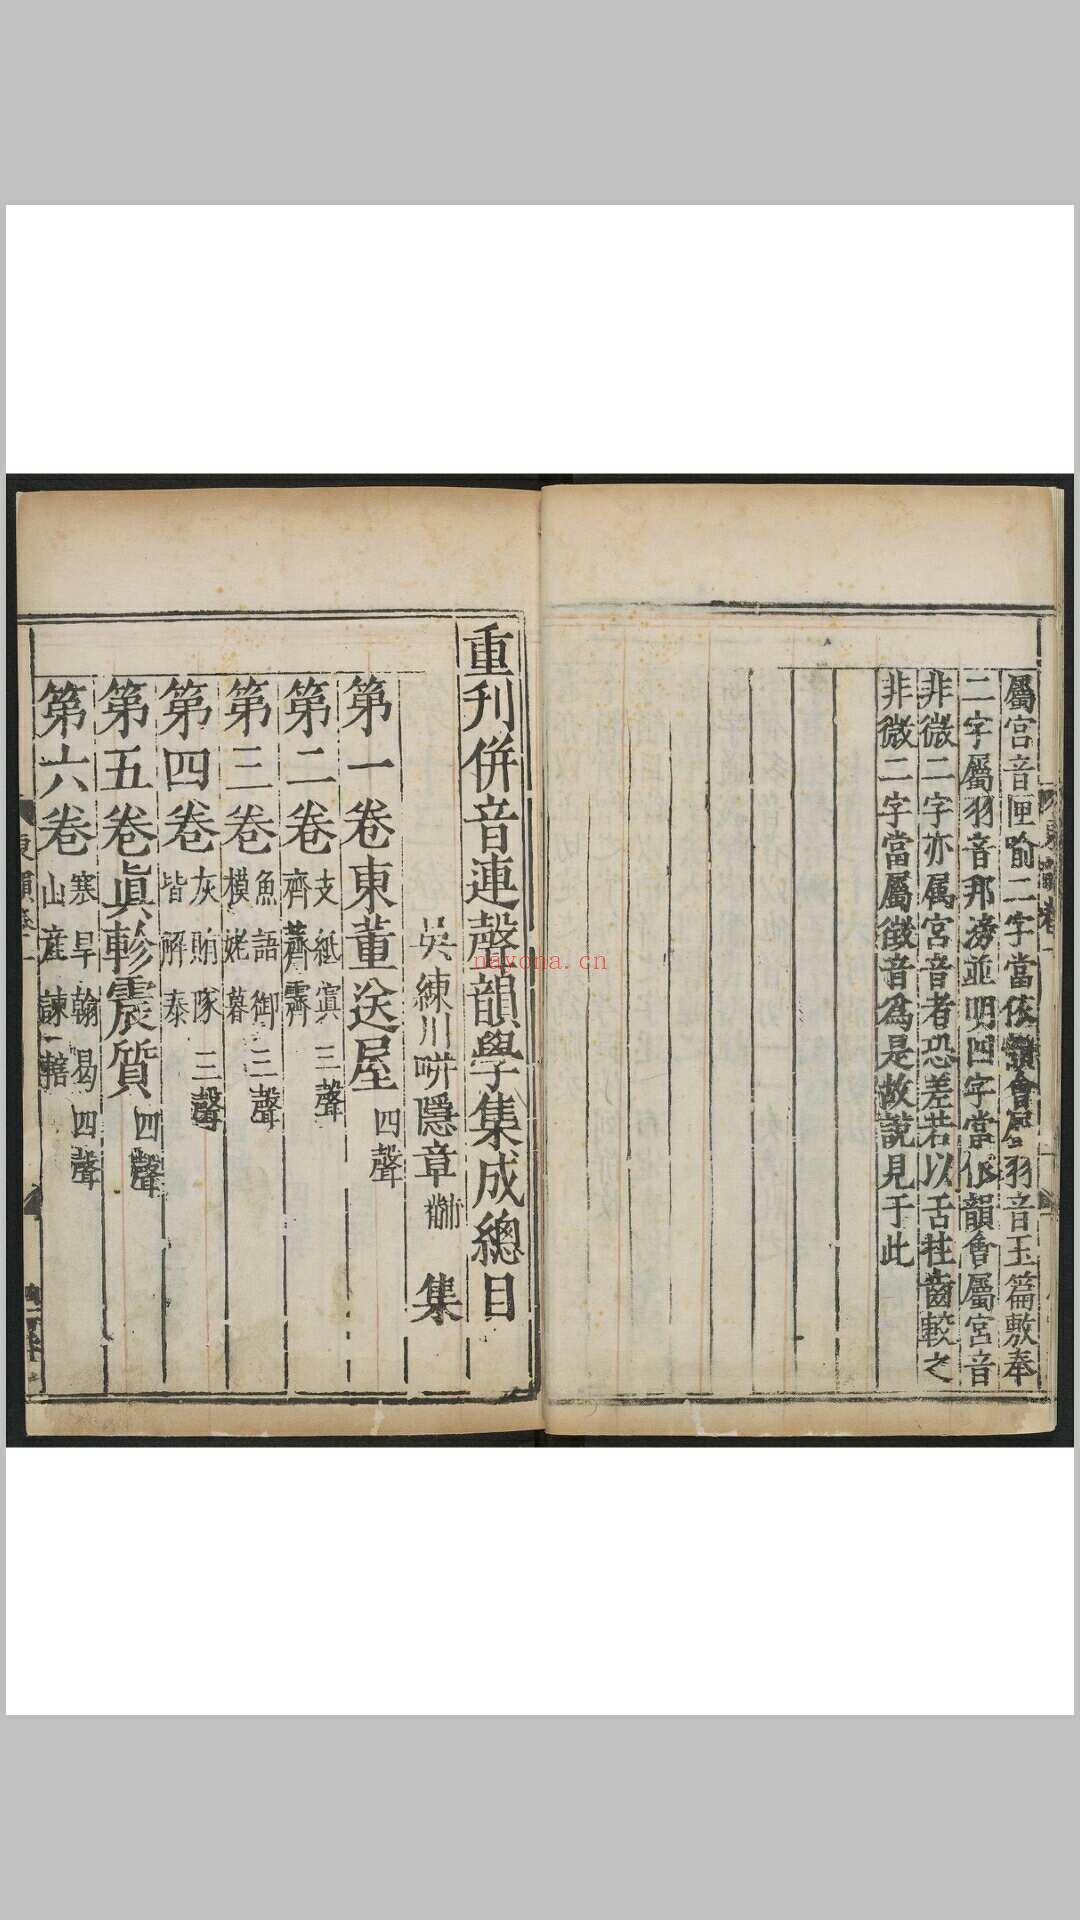 屬宮音匣喻二字當依韻會屬羽音玉篇敷奉
二字屬羽音邦滂並明四字當依韻會屬宮音
非微二字亦属宮音者恐差若以舌拄齒較之
非微二字當屬徵音爲是故説見于此
重刊併音連聲韻學集成總目
吳練川畊隱章黼集
第一卷東董送屋四聲
第二卷支紙寘三聲齊薺霽
第三卷魚語御三聲模姥暮
第四卷灰賄隊三聲皆解泰
第五卷眞軫震質四聲
第六卷寒旱翰曷四聲山産諫轄
nayona.cn